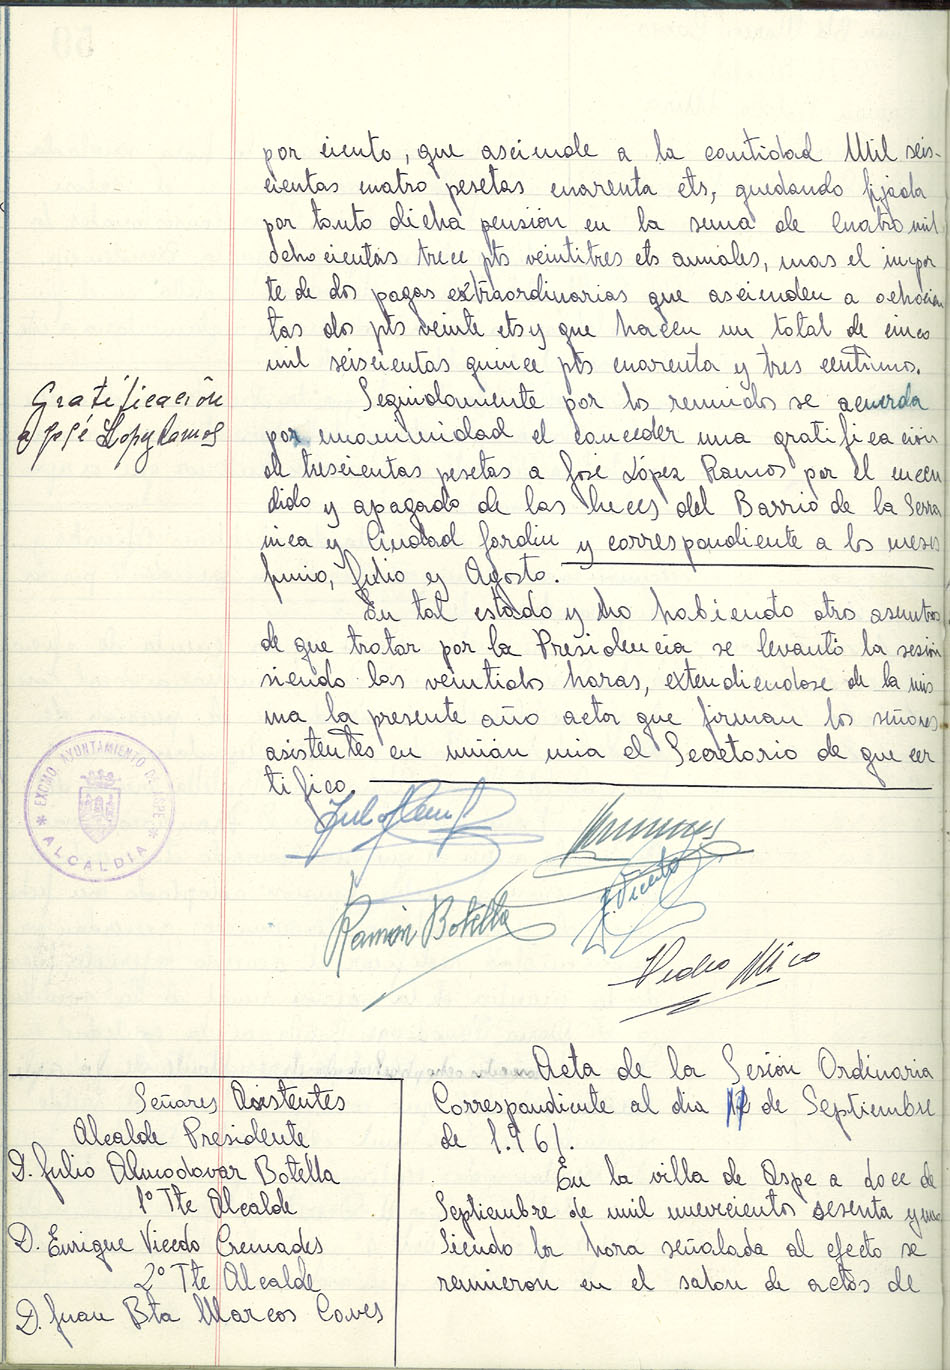 por ciento, que asciende a la cantidad Mil seis-
cientas cuatro pesetas cuarenta cts, quedando fijada
por tanto dicha pensión en la suma de Cuatro mil
ochocientas trece pts veintitres cts anuales, mas el impor
te de dos pagas extraordinarias que ascienden a ochocien
tas dos pts veinte cts y que hacen un total de cinco
mil seiscientas quince pts cuarenta y tres centimos.
Gratificación
a José Lopez Ramos
Seguidamente por los reunidos se acuerda
por unanimidad el conceder una gratificación
de trescientas pesetas a José López Ramos por el encen
dido y apagado de las luces del Barrio de la Serra
nica y Ciudad Jardin y correspondiente a los meses
Junio, Julio y Agosto.
En tal estado y no habiendo otro asuntos
de que tratar por la Presidencia se levantó la sesión
siendo las veintidos horas, extendiendose de la mis
ma la presente año actor que firman los señores
asistentes en unión mia el Secretario de que cer
tifico.
EXCMO. AYUNTAMIENTO DE ASPE
* ALCALDIA *
Ramón Botella
J. Vicente
Pedro Mico
Acta de la Sesión Ordinaria
Correspondiente al dia 12 de Septiembre
de 1.961.
Señores Asistentes
Alcalde Presidente
D. Julio Almodovar Botella
1º Tte Alcalde
D. Enrique Vicedo Cremades
2º Tte Alcalde
D. Juan Bta Marcos Caves
En la villa de Aspe a doce de
Septiembre de mil nuevecientos sesenta y uno
Siendo la hora señalada al efecto se
reunieron en el salon de actos de